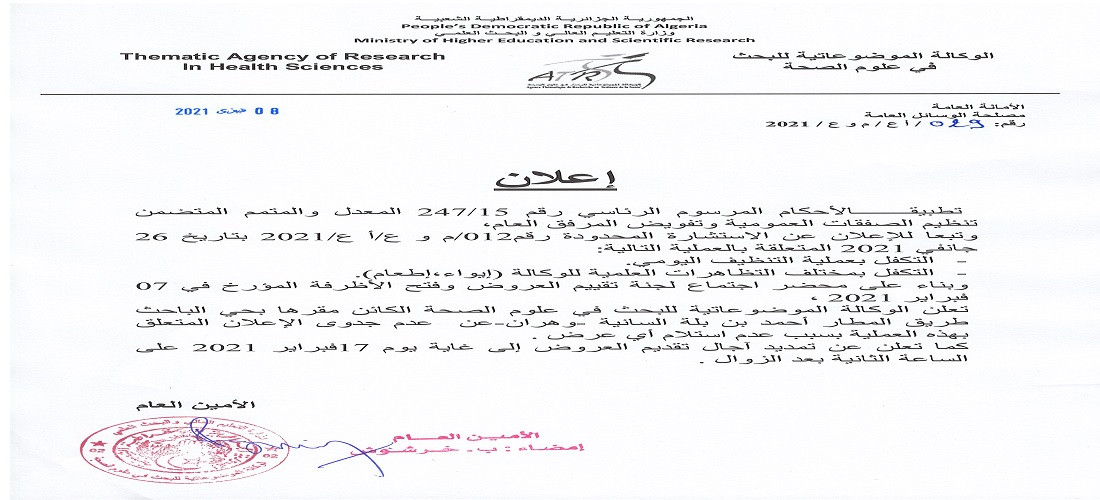 الجمهورية الجزائرية الديمقراطية الشعبية
People's Democratic Republic of Algeria
وزارة التعليم العالي و البحث العلمي
Ministry of Higher Education and Scientific Research
Thematic Agency of Research
In Health Sciences
الوكالة الموضوعاتية للبحث
في علوم الصحة
ATRSS
08 فيفري 2021
الأمانة العامة
مصلحة الوسائل العامة
رقم: 029 / أ ع / م و ع / 2021
إعلان
تطبيقـــــالأحكام المرسوم الرئاسي رقم 247/15 المعدل والمتمم المتضمن
تنظيم الصفقات العمومية وتفويض المرفق العام،
وتبعا للإعلان عن الاستشارة المحدودة رقم012/م و ع/أ ع/2021 بتاريخ 26
جانفي 2021 المتعلقة بالعملية التالية:
- التكفل بعملية التنظيف اليومي.
- التكفل بمختلف التظاهرات العلمية للوكالة (إيواء،إطعام).
وبناء على محضر اجتماع لجنة تقييم العروض وفتح الأظرفة المؤرخ في 07
فبراير 2021 ،
تعلن الوكالة الموضوعاتية للبحث في علوم الصحة الكائن مقرها بحي الباحث
طريق المطار أحمد بن بلة السانية -وهران-عن عدم جدوى الإعلان المتعلق
بهذه العملية بسبب عدم استلام أي عرض .
كما تعلن عن تمديد آجال تقديم العروض إلى غاية يوم 17فبراير 2021 على
الساعة الثانية بعد الزوال .
الأمين العام
الأمين العـام
إمضاء : ب. خرشوش